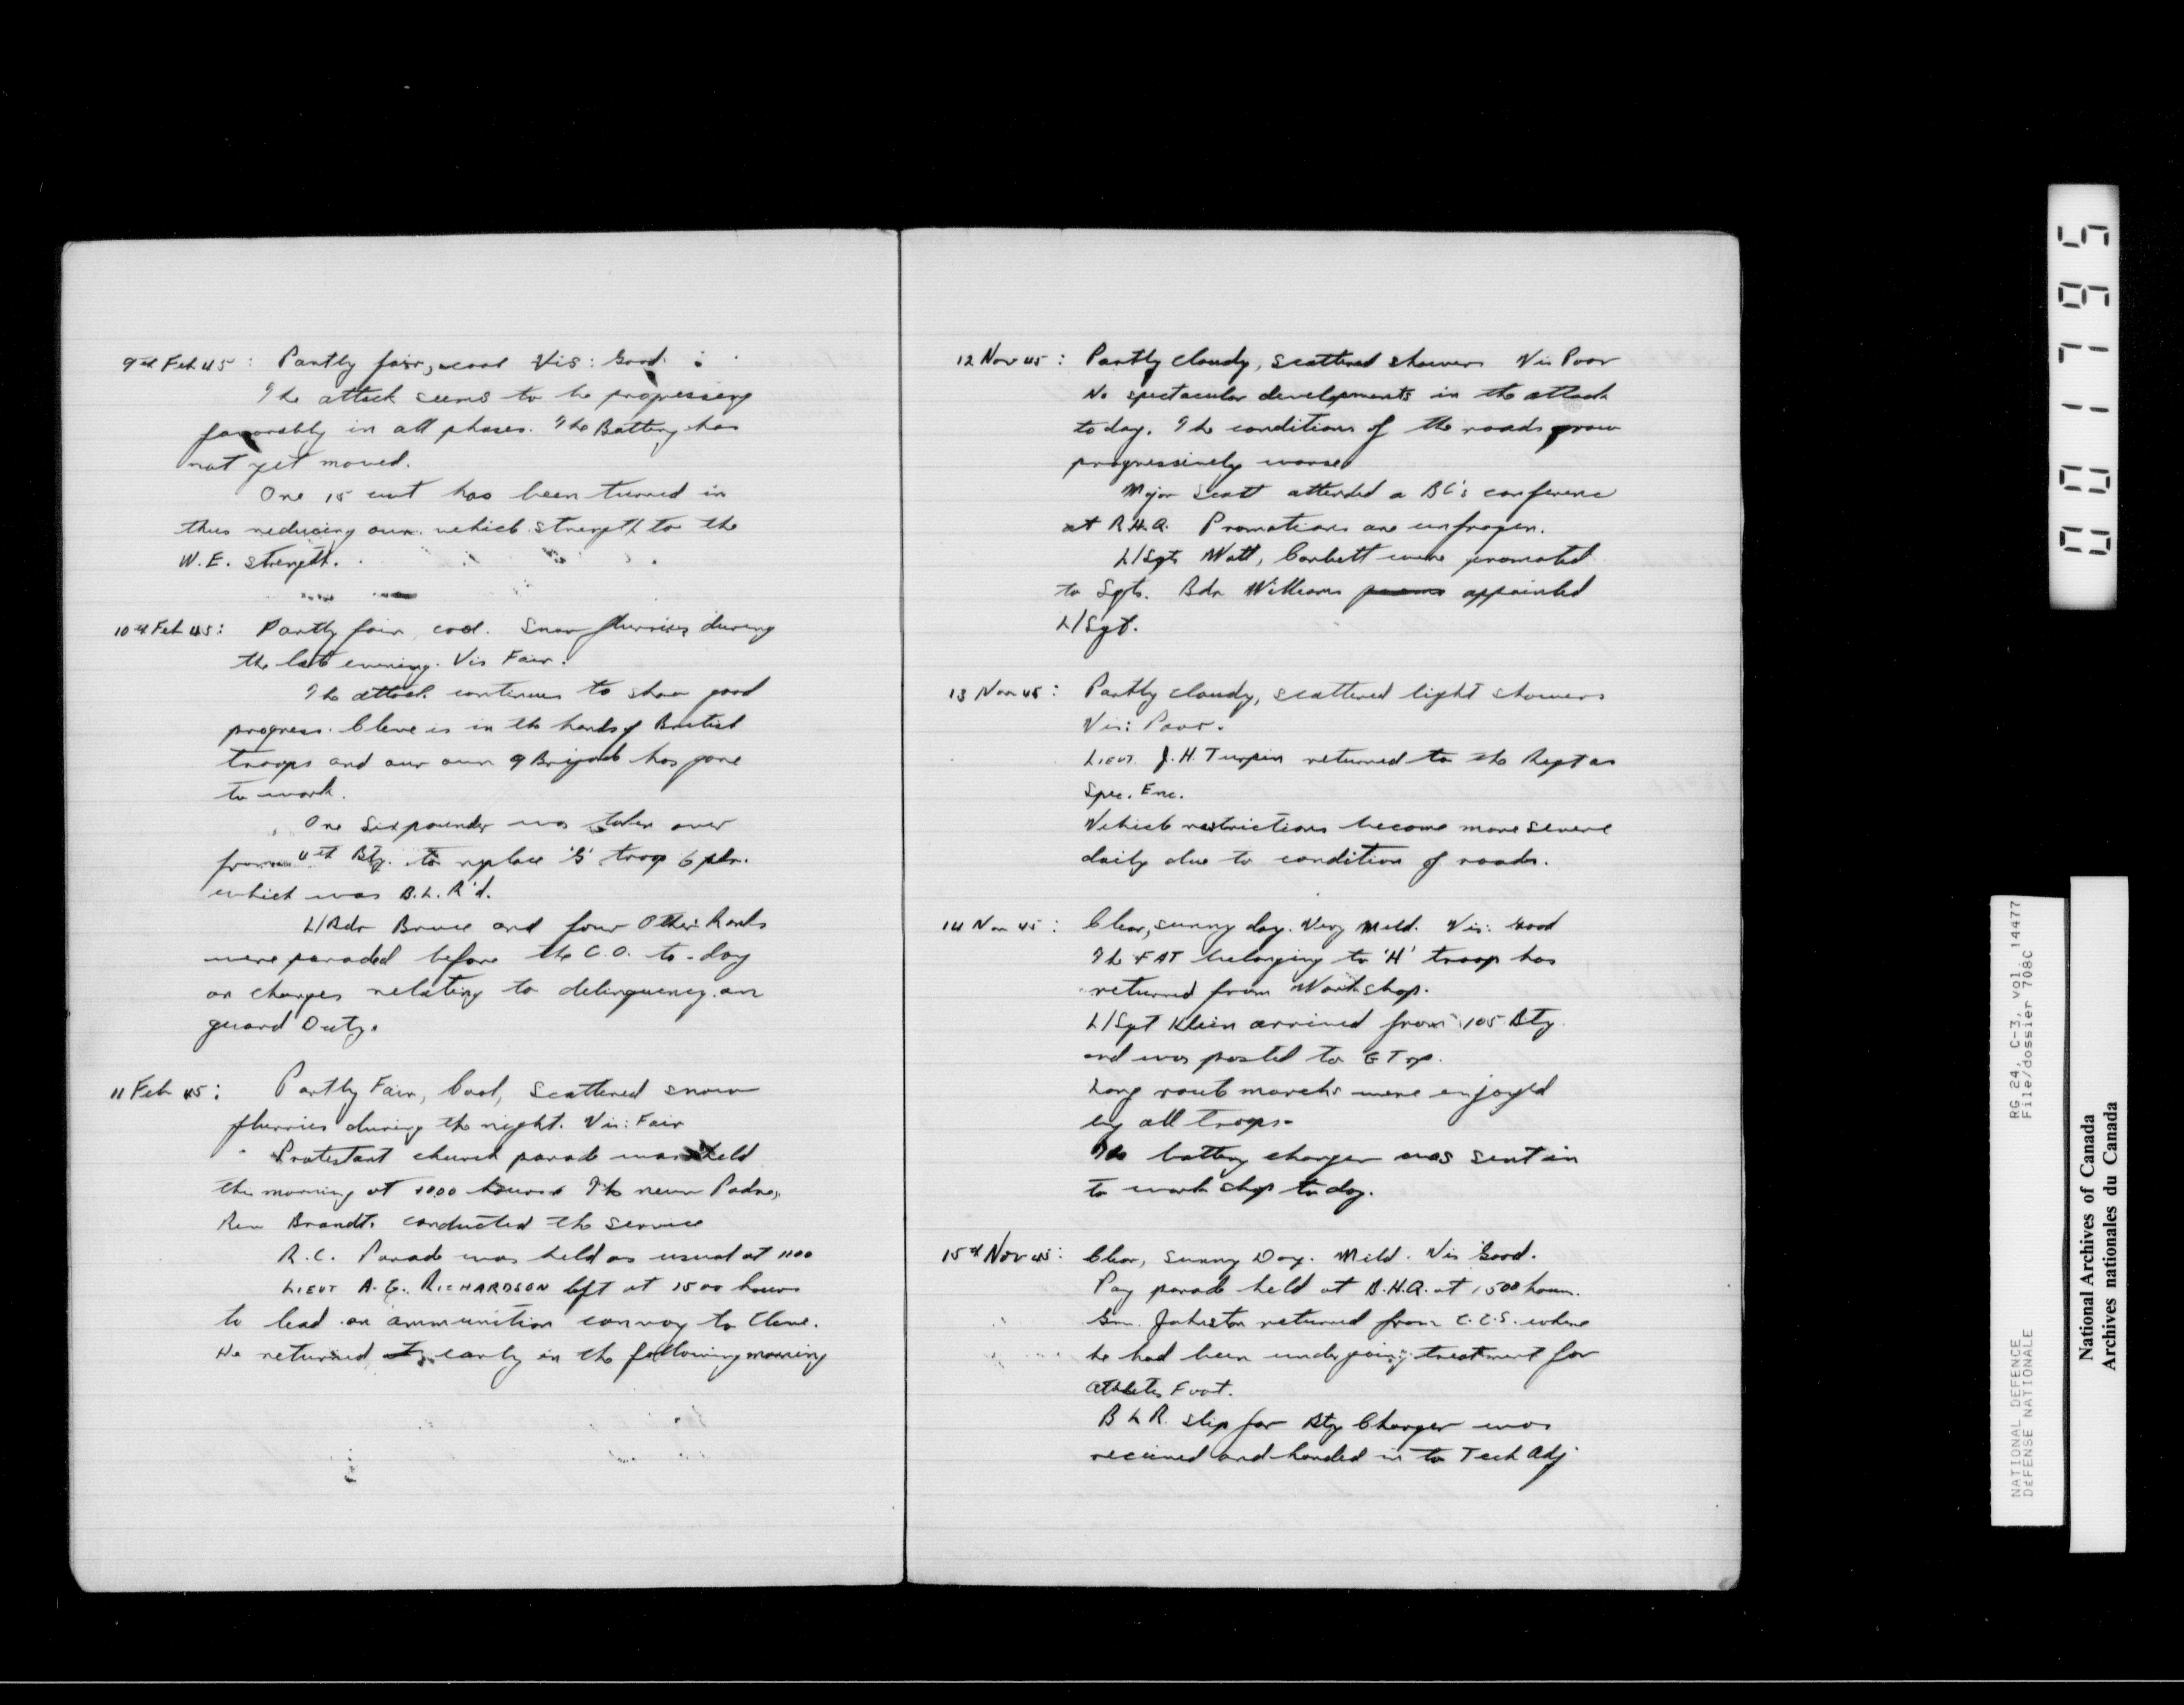 9th Feb 45 : Partly fair, cool Vis: Good.
The attack seems to be progressing
favorably in all phases. The Battery has
not yet moved.
One 15 cwt has been turned in
thus reducing our vehicle strength to the
W.E. strength.
10th Feb 45 : Partly fair, cool. Snow flurries during
the late evening. Vis Fair.
The attack continues to show good
progress. Cleve is in the hands of British
troops and our own 9 Brigade has gone
to work.
One Sixpounder was taken over
from 4th Bty. to replace 'G' troop 6 pdr.
which was B.L.R'd.
L/Bdr Bruce and four Other Ranks
were paraded before the C.O. to-day
on charges relating to delinquency on
guard Duty.
11 Feb 45 : Partly Fair, Cool, Scattered snow
flurries during the night. Vis: Fair
Protestant church parade was held
this morning at 1000 hours. The new Padre,
Rev Brandt. conducted the service
R.C. Parade was held as usual at 1100
LIEUT A.G. RICHARDSON left at 1500 hours
to lead an ammunition convoy to Cleve.
He returned early in the following morning
12 Nov 45 : Partly cloudy, scattered showers Vis Poor
No spectacular developments in the attack
to day. The conditions of the roads grow
progressively worse
Major Scott attended a BC's conference
at R.H.Q. Promotions are unfrozen.
L/Sgts Watt, Corbett were promoted
to Sgts. Bdr Williams appointed
L/Sgt.
13 Nov 45 : Partly cloudy, scattered light showers
Vis: Poor.
LIEUT. J.H. Turpin returned to the Regt as
Spec. Enc.
Vehicle restrictions become more severe
daily due to condition of roads.
14 Nov 45 : Clear, sunny day. Very Mild. Vis: Good
The FAT belonging to 'H' troop has
returned from Workshop.
L/Sgt Klein arrived from 105 Bty
and was posted to G Trp.
Long route marchs were enjoyed
by all troops.
The battery charger was sent in
to work shop to day.
15th Nov 45 : Clear, Sunny Day. Mild. Vis Good.
Pay parade held at B.H.Q. at 1500 hours.
Gnr. Johnston returned from C.C.S. where
he had been undergoing treatment for
Athletes Foot.
B L R. slip for Bty Charger was
received and handed in to Tech Adj
0011795
RG 24, C-3, vol. 14477
File/dossier 708C
NATIONAL DEFENCE
DÉFENSE NATIONALE
National Archives of Canada
Archives nationales du Canada